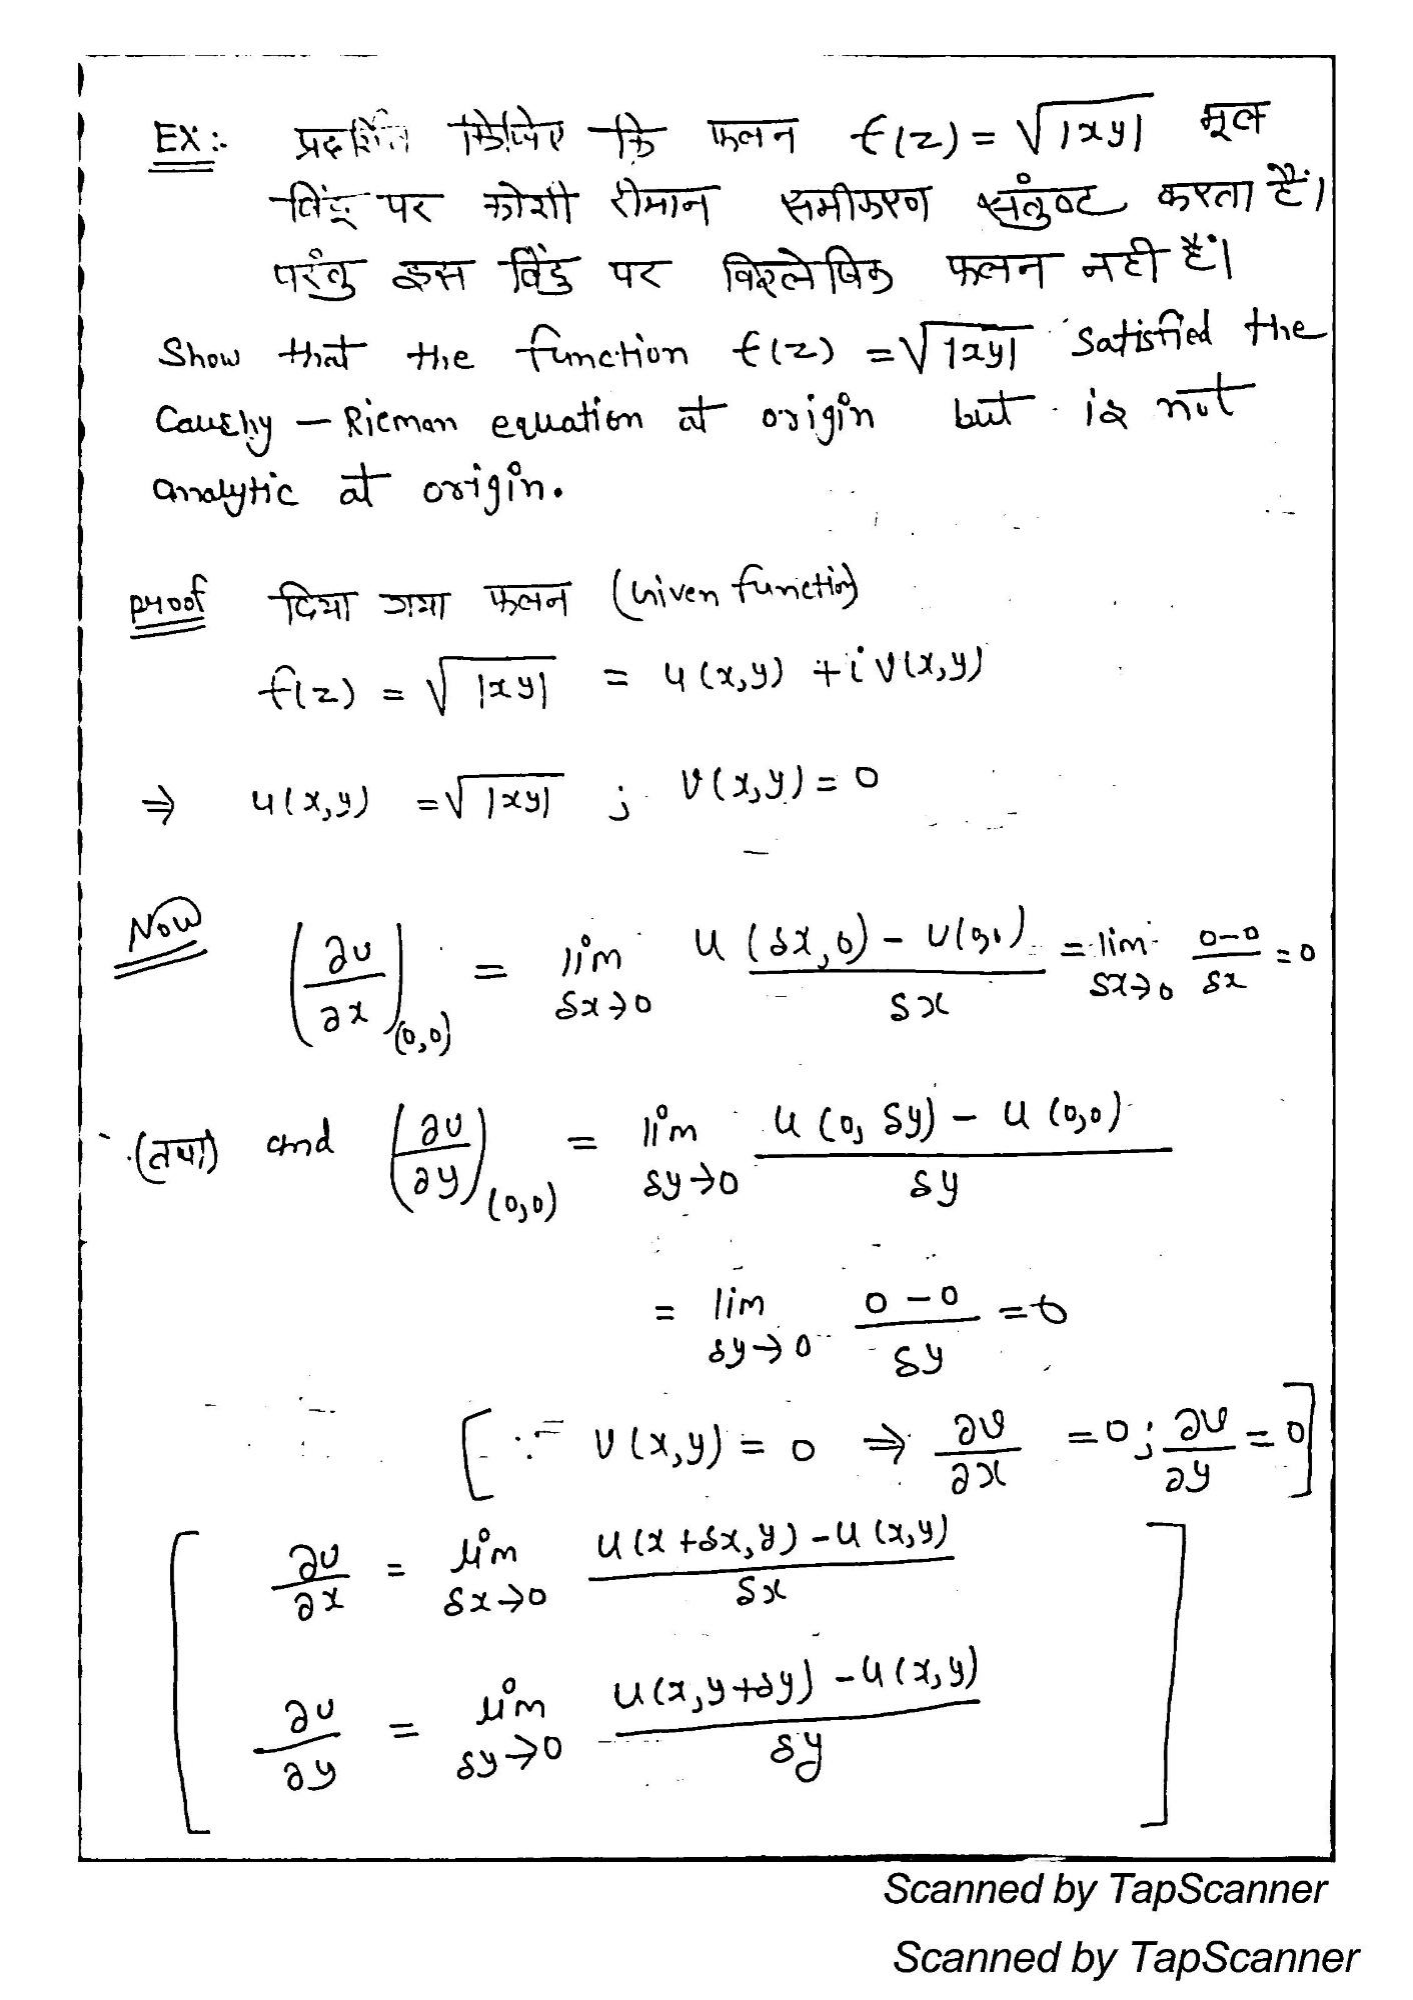 EX:- प्रदर्शित किजिए कि फलन f(z) = √|xy| मूल
बिंदू पर कोशी रीमान समीकरण संतुष्ट करता हैं।
परंतु इस बिंदु पर विश्लेषिक फलन नही हैं।
Show that the function f(z) = √|xy| satisfied the
Cauchy – Rieman equation at origin but is not
analytic at origin.
proof दिया गया फलन (Given function)
f(z) = √|xy| = u(x,y) + i v(x,y)
⇒ u(x,y) = √|xy| ; v(x,y) = 0
Now (∂u/∂x)(0,0) = lim δx→0 u(δx,0) – u(0,0) / δx = lim δx→0 0–0 / δx = 0
(तथा) and (∂u/∂y)(0,0) = lim δy→0 u(0, δy) – u(0,0) / δy
= lim δy→0 0–0 / δy = 0
[∵ v(x,y) = 0 ⇒ ∂v/∂x = 0 ; ∂v/∂y = 0]
[∂u/∂x = lim δx→0 u(x+δx,y) – u(x,y) / δx
∂u/∂y = lim δy→0 u(x,y+δy) – u(x,y) / δy]
Scanned by TapScanner
Scanned by TapScanner